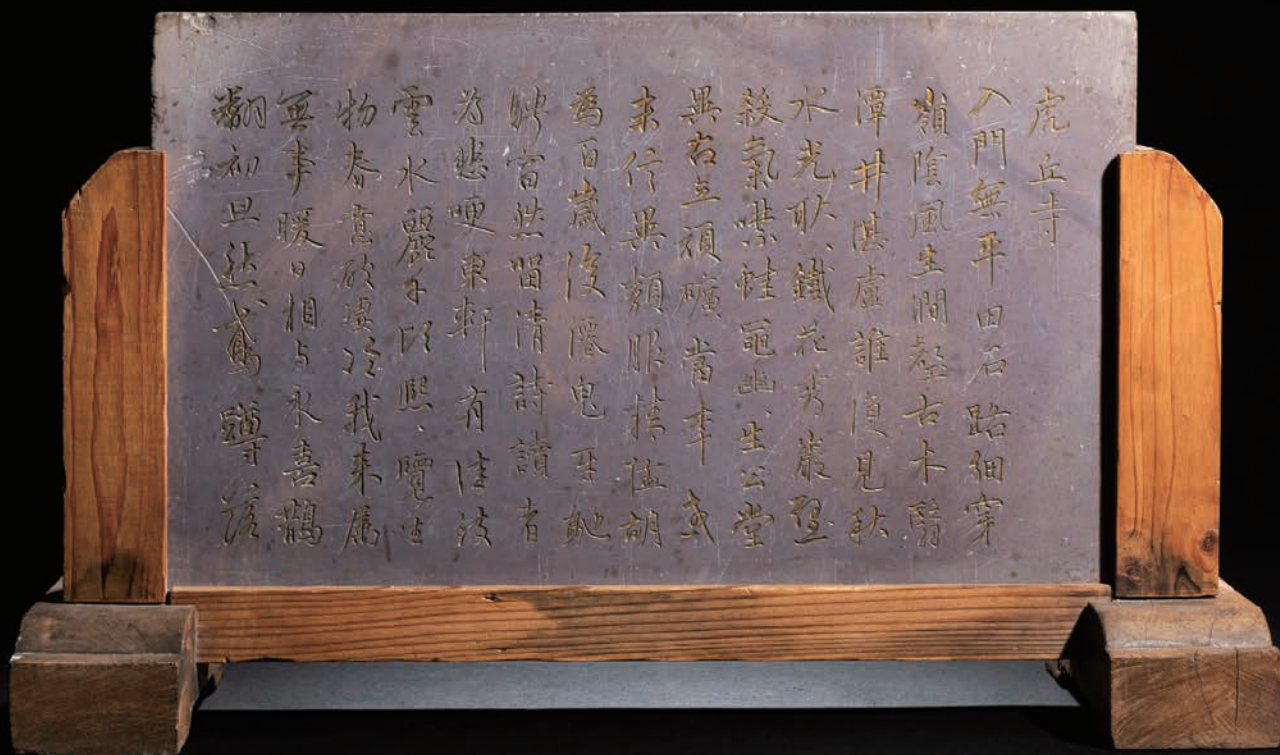 虎丘寺
入門無平田石路細穿
嶺陰風生澗壑古木翳
潭井湛盧誰復見秋
水光耿〻鐵花秀巖壁
殺氣噤蛙黽幽〻生公堂
右立頑礦當年或
未信異類服精猛胡
為百歲後僊鬼互馳
騁窅然留清詩讀者
為悲哽東軒有佳致
雲水麗千頃熙〻覽生
物春意破淒冷我來屬
無事暖日相与永喜鵲
翻初旦愁鳶蹲落